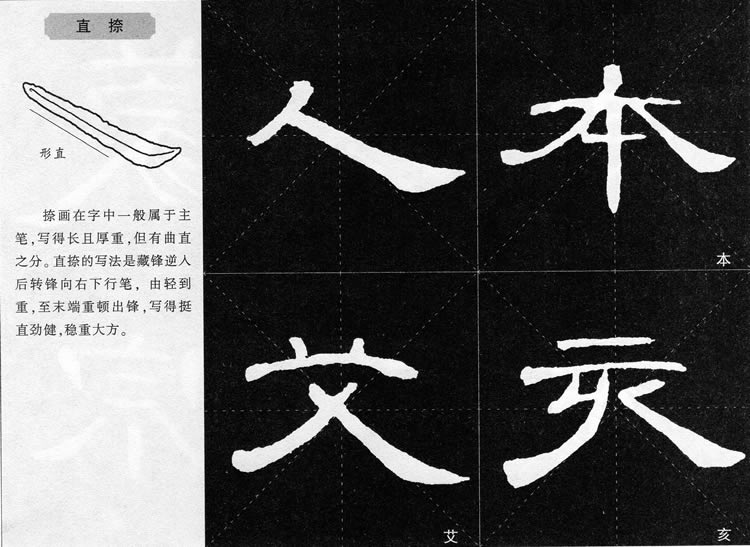 直 捺
形直
捺画在字中一般属于主
笔,写得长且厚重,但有曲直
之分。直捺的写法是藏锋逆人
后转锋向右下行笔,由轻到
重,至末端重顿出锋,写得挺
直劲健,稳重大方。
人
本
本
艾
艾
亥
亥